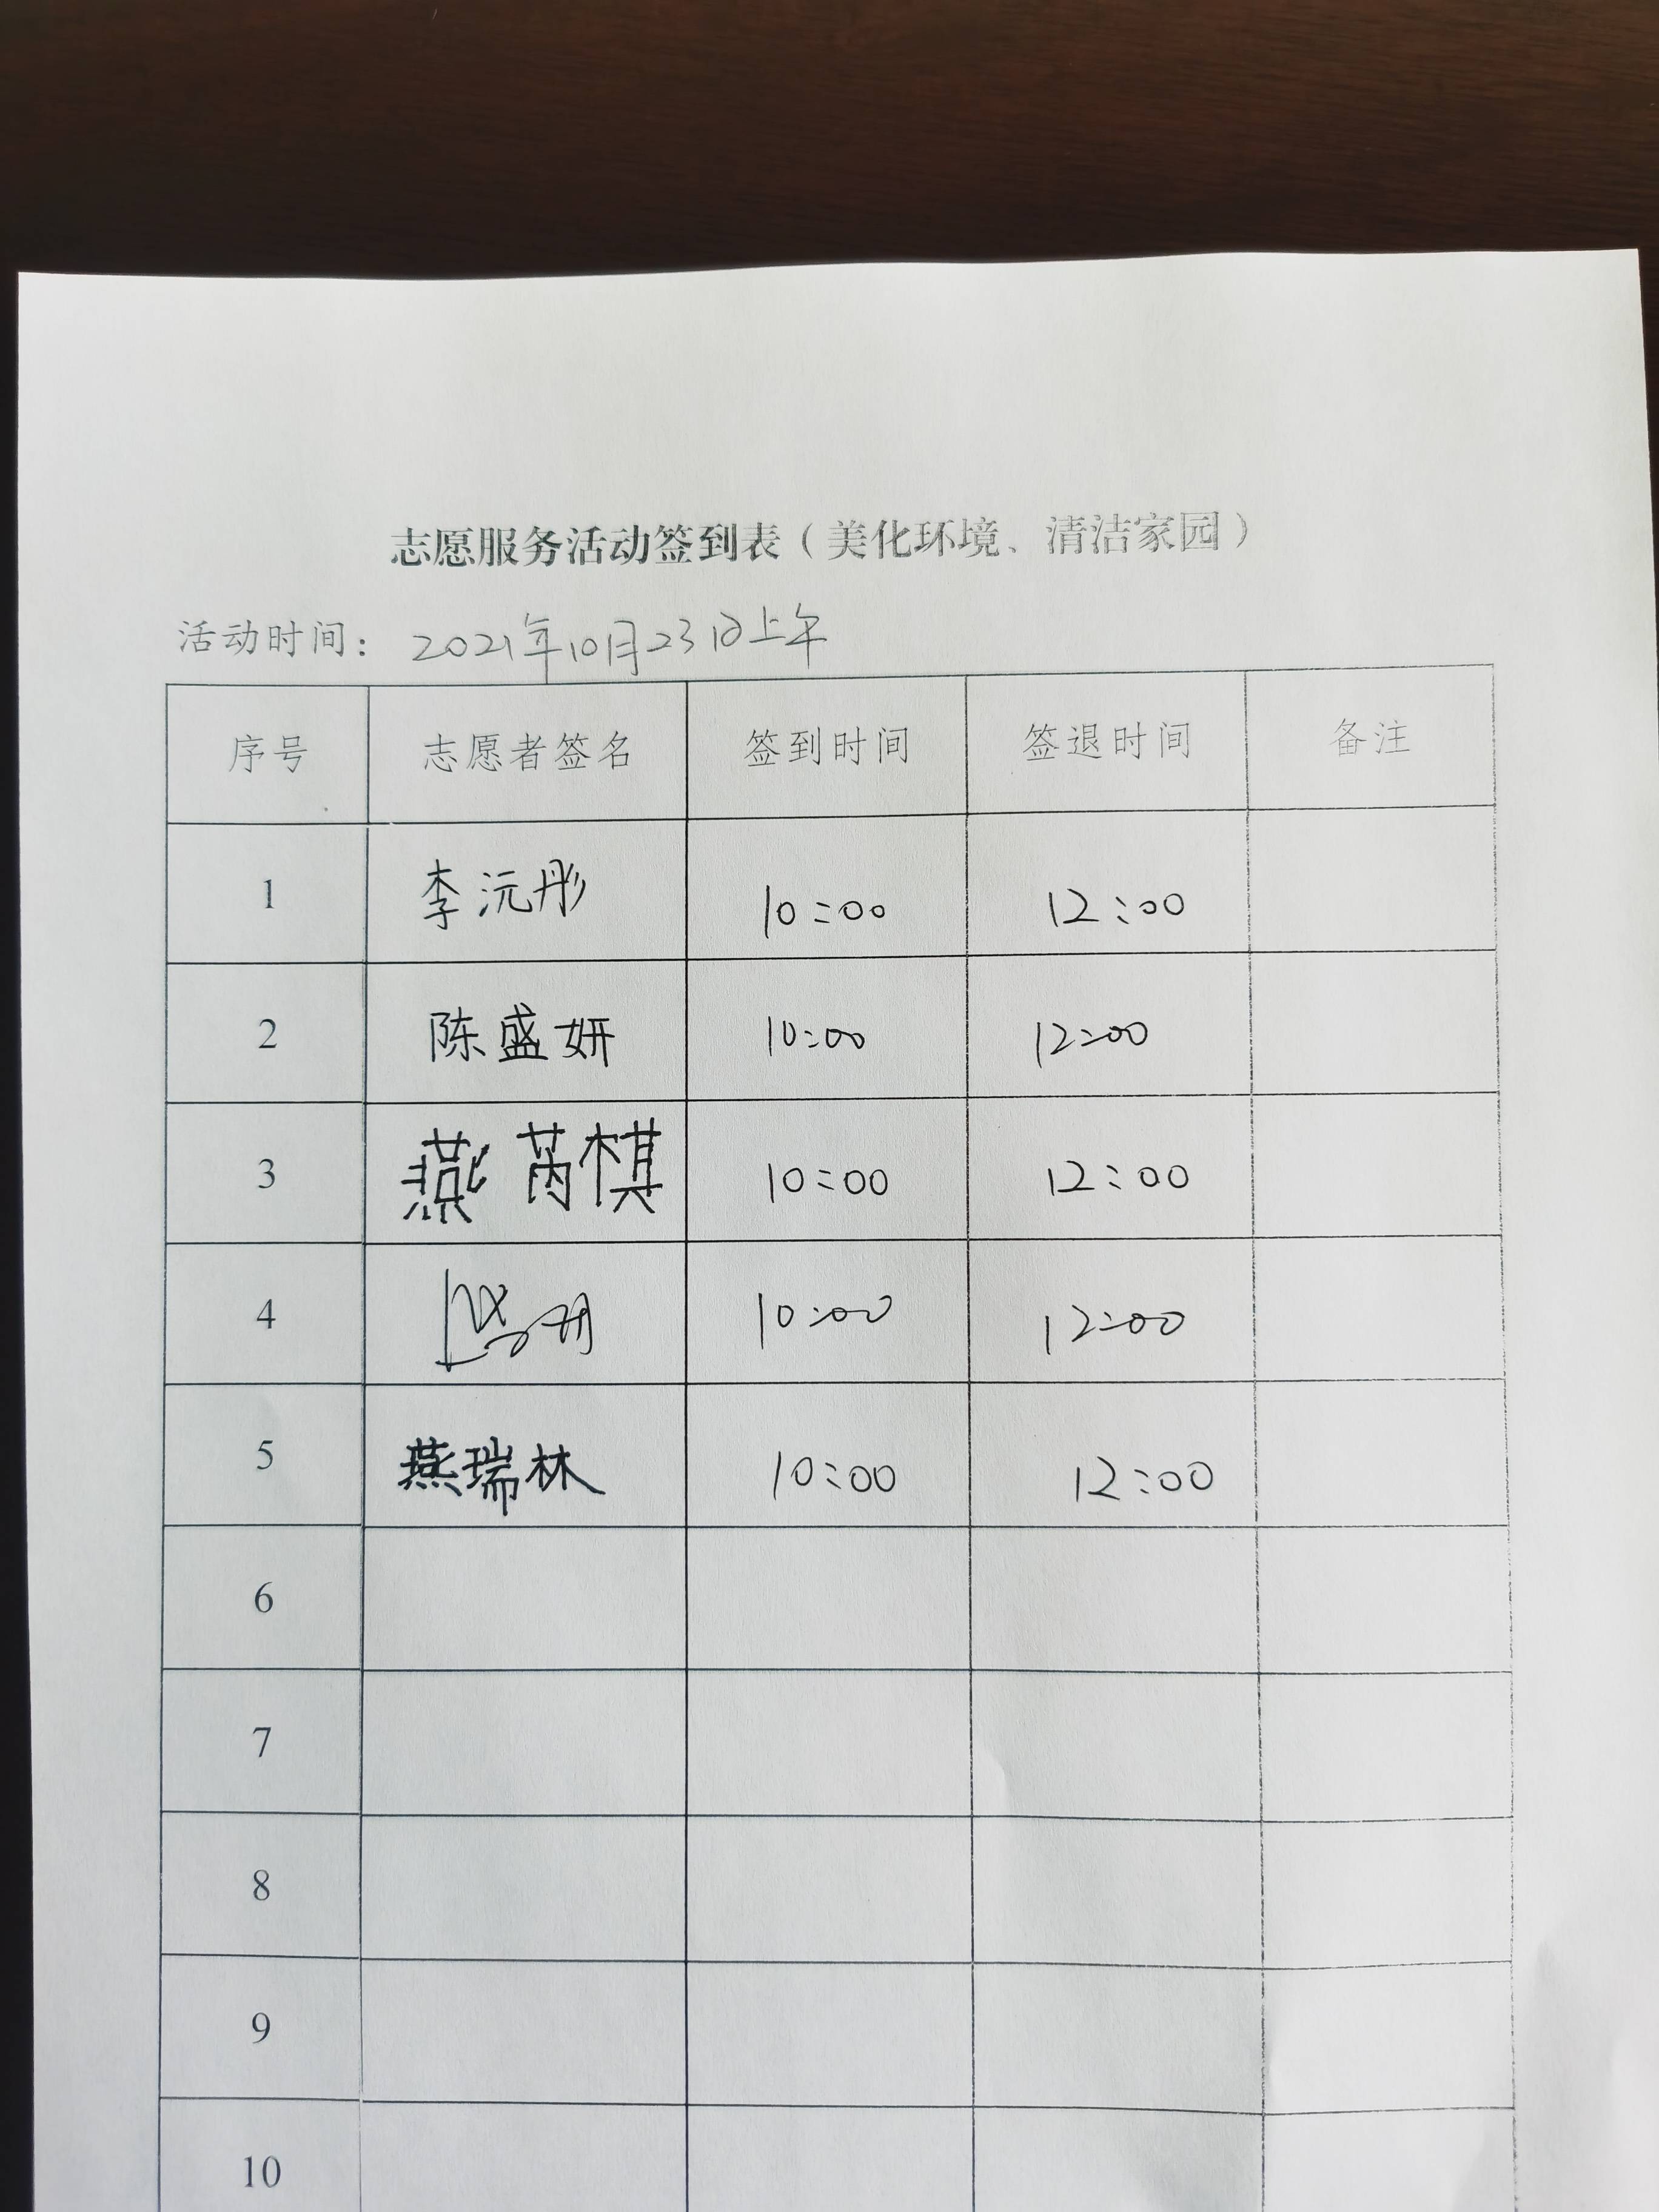 志愿服务活动签到表（美化环境、清洁家园）
活动时间：2021年10月23日上午
序号 志愿者签名 签到时间 签退时间 备注
1 李沅彤 10:00 12:00
2 陈盛妍 10:00 12:00
3 燕芮棋 10:00 12:00
4 10:00 12:00
5 燕瑞林 10:00 12:00
6
7
8
9
10